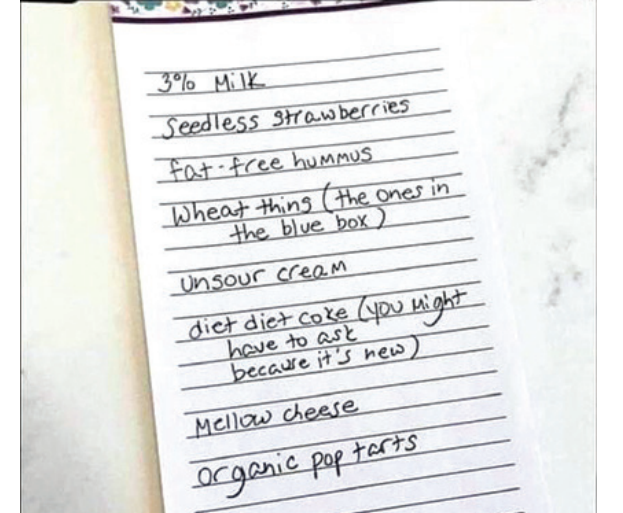 3% Milk
Seedless Strawberries
fat-free hummus
Wheat thing (the ones in
the blue box)
unsour cream
diet diet coke (you might
have to ask
because it's new)
Mellow cheese
organic pop tarts